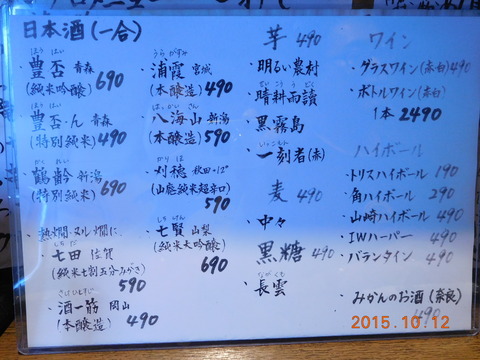 日本酒(一合)
ほうはい
・豊盃 青森
(純米吟醸) 690
ほうはい
・豊盃・ん 青森
(特別純米) 490
かくれい
・鶴齢 新潟
(特別純米) 690
・熱燗・ヌル燗に、
しちだ
七田 佐賀
(純米七割五分みがき)
590
さけひとすじ
・酒一筋 岡山
(本醸造) 490
うらがすみ
・浦霞 宮城
(本醸造) 490
はっかいさん
・八海山 新潟
(本醸造) 590
かりほ
・刈穂 秋田+12°
(山廃純米超辛口)
590
しちけん
・七賢 山梨
(純米大吟醸)
690
芋 490
・明るい農村
・晴耕雨讀
・黒霧島
いっこもん
・一刻者(赤)
麦 490
・中々
黒糖 490
ながくも
・長雲
ワイン
・グラスワイン(赤白)490
・ボトルワイン(赤白)
1本 2490
ハイボール
・トリスハイボール 190
・角ハイボール 290
・山崎ハイボール 490
・IWハーパー 490
・バランタイン 490
・みかんのお酒(奈良)
490
2015.10.12